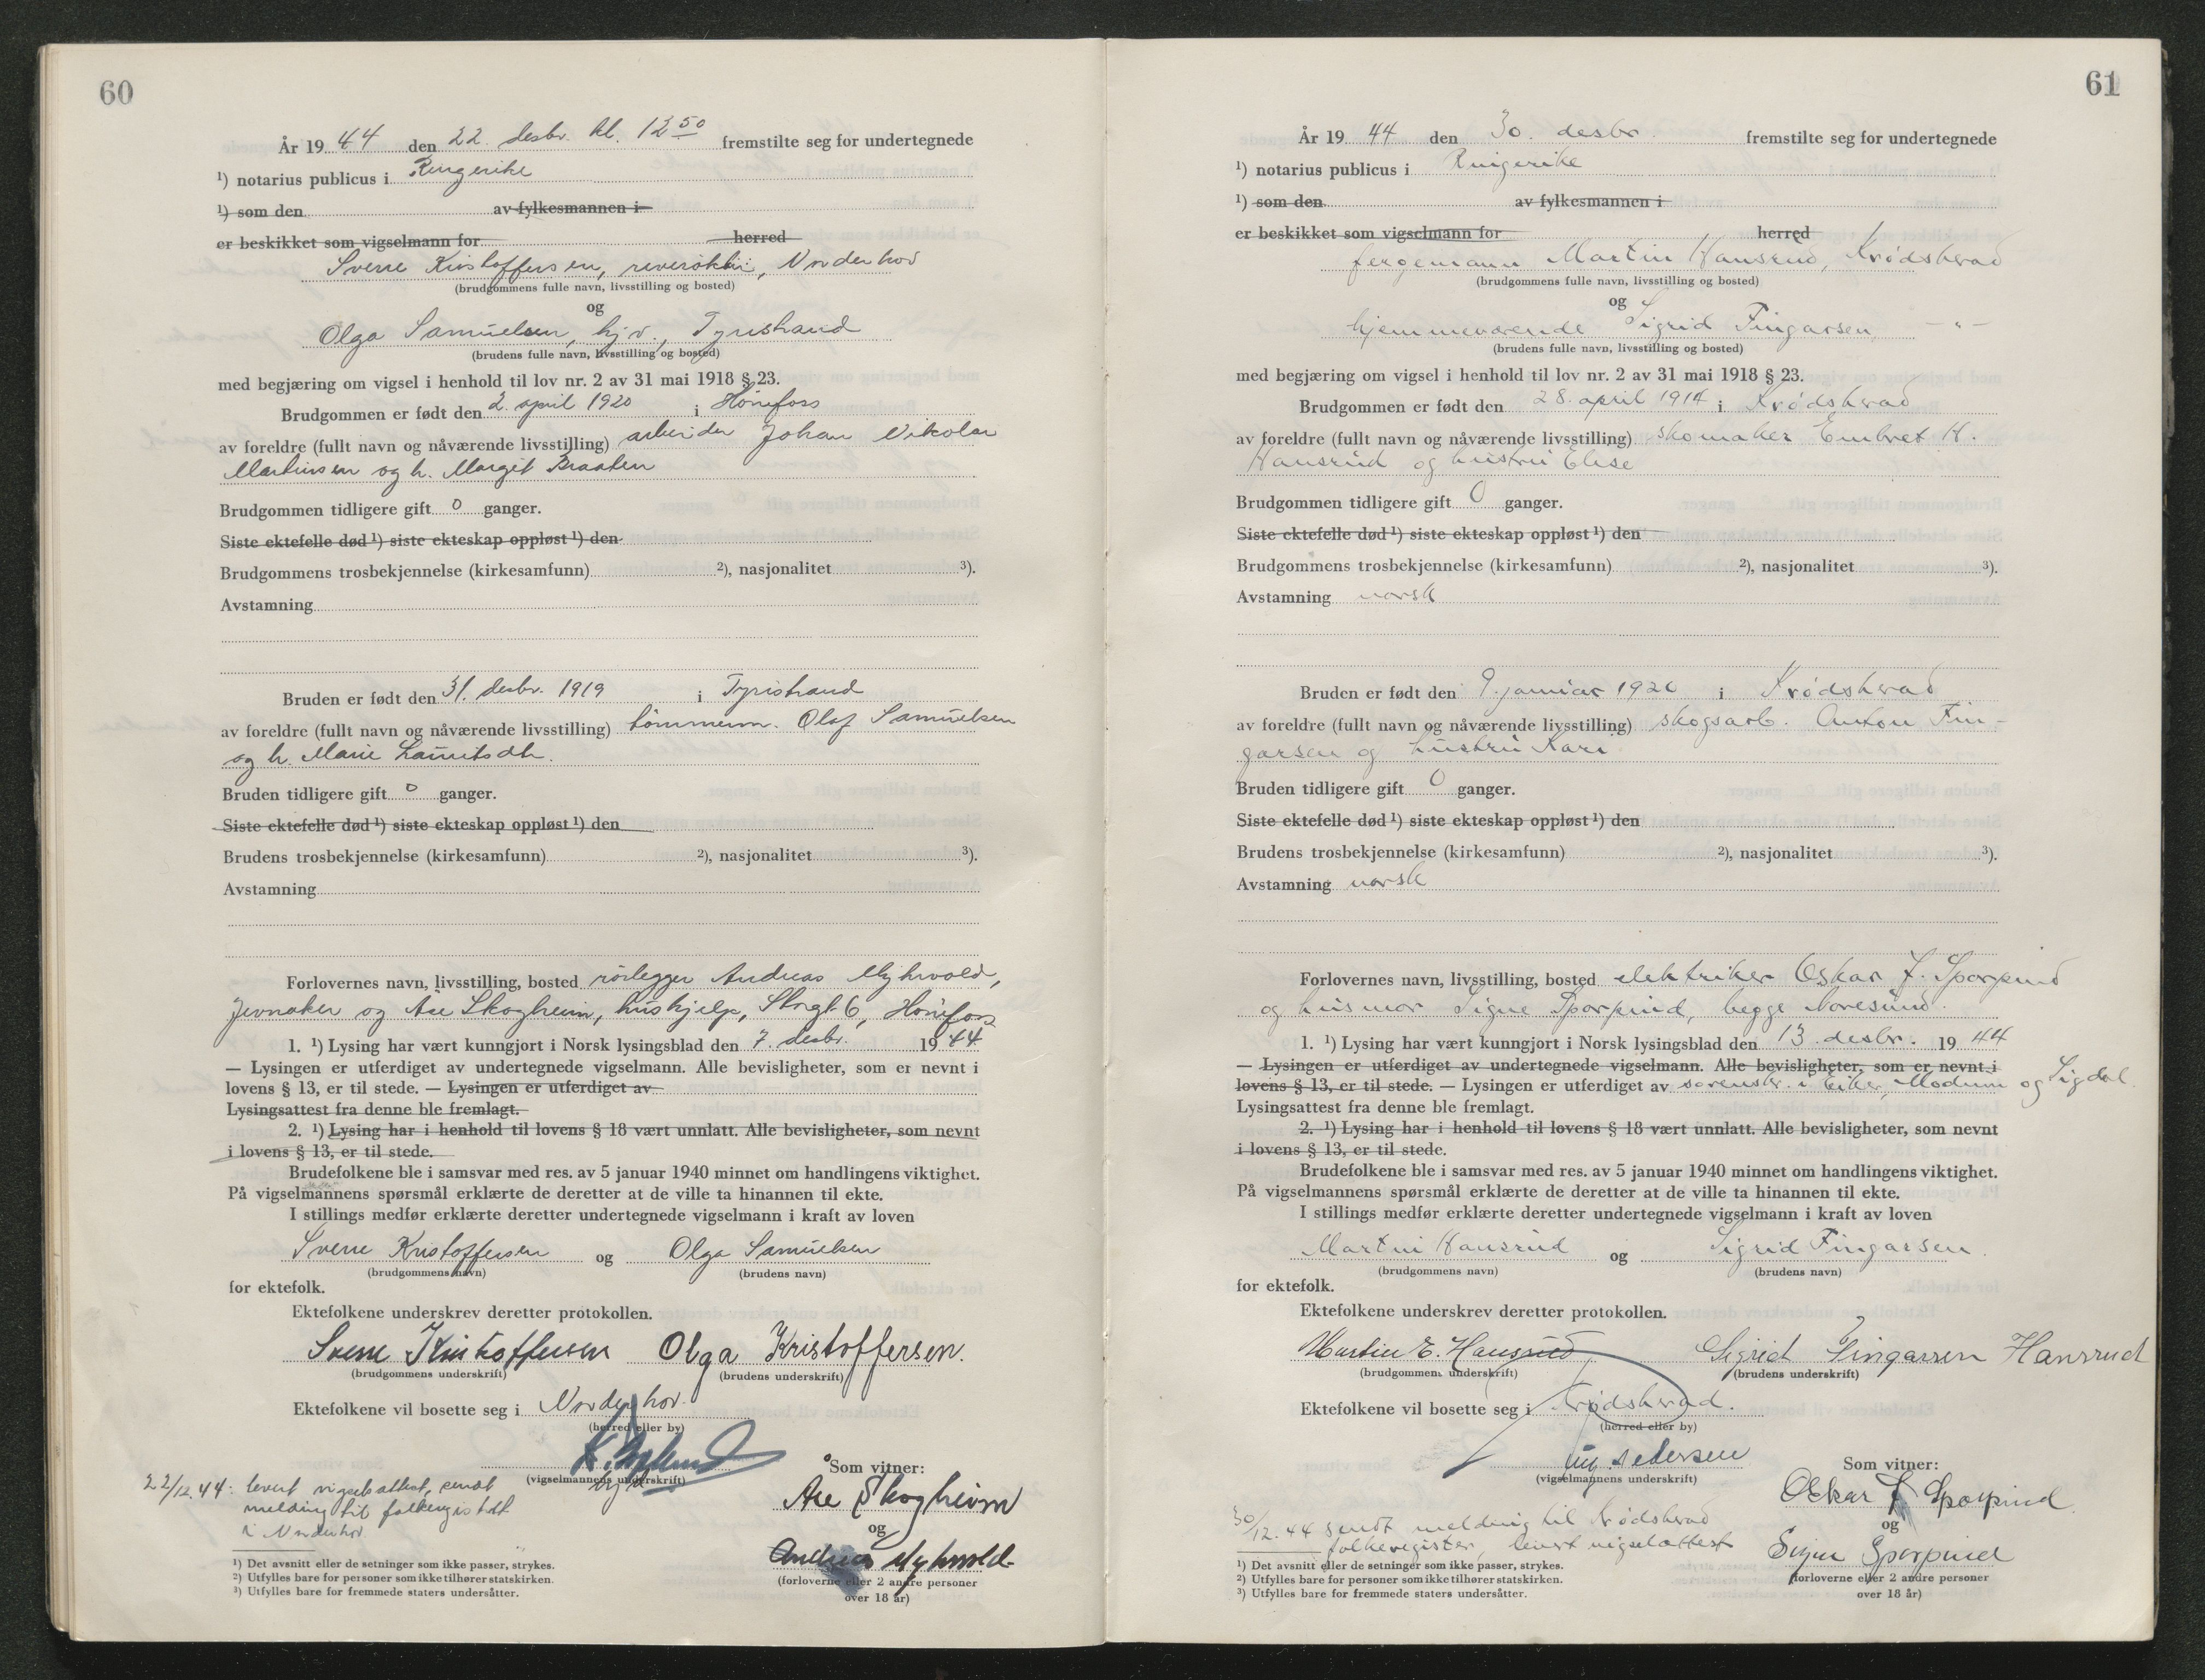 60
År 19 44 den 22. desbr. kl. 12 50 fremstilte seg for undertegnede
¹) notarius publicus i Ringerike
¹) som den av fylkesmannen i
er beskikket som vigselmann for herred
Sverre Kristoffersen, Norderhov
(brudgommens fulle navn, livsstilling og bosted)
og
Olga Samuelsen, hjv., Tyristrand
(brudens fulle navn, livsstilling og bosted)
med begjæring om vigsel i henhold til lov nr. 2 av 31 mai 1918 § 23.
Brudgommen er født den 2. april 1920 i Hönefoss
av foreldre (fullt navn og nåværende livsstilling) arbeider Johan Nikolai
Martinsen og h. Margit Braaten
Brudgommen tidligere gift 0 ganger.
Siste ektefelle død ¹) siste ekteskap oppløst ¹) den
Brudgommens trosbekjennelse (kirkesamfunn) ²), nasjonalitet ³).
Avstamning
Bruden er født den 31. desbr. 1919 i Tyristrand
av foreldre (fullt navn og nåværende livsstilling) tömmerm. Olaf Samuelsen
og h. Marie Lauritsdtr.
Bruden tidligere gift 0 ganger.
Siste ektefelle død ¹) siste ekteskap oppløst ¹) den
Brudens trosbekjennelse (kirkesamfunn) ²), nasjonalitet ³).
Avstamning
Forlovernes navn, livsstilling, bosted rörlegger Andreas Myhrvold,
Jevnaker og Åse Skogheim, hushjelp, Storgt. 6, Hönefoss
1. ¹) Lysing har vært kunngjort i Norsk lysingsblad den 7. desbr. 19 44
— Lysingen er utferdiget av undertegnede vigselmann. Alle bevisligheter, som er nevnt i
lovens § 13, er til stede. — Lysingen er utferdiget av
Lysingsattest fra denne ble fremlagt.
2. ¹) Lysing har i henhold til lovens § 18 vært unnlatt. Alle bevisligheter, som nevnt
i lovens § 13, er til stede.
Brudefolkene ble i samsvar med res. av 5 januar 1940 minnet om handlingens viktighet.
På vigselmannens spørsmål erklærte de deretter at de ville ta hinannen til ekte.
I stillings medfør erklærte deretter undertegnede vigselmann i kraft av loven
Sverre Kristoffersen og Olga Samuelsen
(brudgommens navn) (brudens navn)
for ektefolk.
Ektefolkene underskrev deretter protokollen.
Sverre Kristoffersen Olga Kristoffersen.
(brudgommens underskrift) (brudens underskrift)
Ektefolkene vil bosette seg i Norderhov.
(herred eller by)
(vigselmannens underskrift)
Som vitner:
Åse Skogheim
og
Andreas Myhrvold
(forloverne eller 2 andre personer
over 18 år)
22/12.44: levert vigselsattest, sendt
melding til folkeregistret
i Norderhov.
¹) Det avsnitt eller de setninger som ikke passer, strykes.
²) Utfylles bare for personer som ikke tilhører statskirken.
³) Utfylles bare for fremmede staters undersåtter.
61
År 19 44 den 30. desbr. fremstilte seg for undertegnede
¹) notarius publicus i Ringerike
¹) som den av fylkesmannen i
er beskikket som vigselmann for herred
fergemann Martin Hansrud, Krödsherad
(brudgommens fulle navn, livsstilling og bosted)
og
hjemmeværende Sigrid Fingarsen, — " —
(brudens fulle navn, livsstilling og bosted)
med begjæring om vigsel i henhold til lov nr. 2 av 31 mai 1918 § 23.
Brudgommen er født den 28. april 1914 i Krödsherad
av foreldre (fullt navn og nåværende livsstilling) skomaker Embret H.
Hansrud og hustru Elise
Brudgommen tidligere gift 0 ganger.
Siste ektefelle død ¹) siste ekteskap oppløst ¹) den
Brudgommens trosbekjennelse (kirkesamfunn) ²), nasjonalitet ³).
Avstamning norsk
Bruden er født den 9. januar 1920 i Krödsherad
av foreldre (fullt navn og nåværende livsstilling) skogsarb. Anton Fin-
garsen og hustru Kari
Bruden tidligere gift 0 ganger.
Siste ektefelle død ¹) siste ekteskap oppløst ¹) den
Brudens trosbekjennelse (kirkesamfunn) ²), nasjonalitet ³).
Avstamning norsk
Forlovernes navn, livsstilling, bosted elektriker Oskar J. Sporpind
og husmor Signe Sporpind, begge Noresund.
1. ¹) Lysing har vært kunngjort i Norsk lysingsblad den 13. desbr. 19 44
— Lysingen er utferdiget av undertegnede vigselmann. Alle bevisligheter, som er nevnt i
lovens § 13, er til stede. — Lysingen er utferdiget av sorenskr. i Eiker, Modum og Sigdal
Lysingsattest fra denne ble fremlagt.
2. ¹) Lysing har i henhold til lovens § 18 vært unnlatt. Alle bevisligheter, som nevnt
i lovens § 13, er til stede.
Brudefolkene ble i samsvar med res. av 5 januar 1940 minnet om handlingens viktighet.
På vigselmannens spørsmål erklærte de deretter at de ville ta hinannen til ekte.
I stillings medfør erklærte deretter undertegnede vigselmann i kraft av loven
Martin Hansrud og Sigrid Fingarsen.
(brudgommens navn) (brudens navn)
for ektefolk.
Ektefolkene underskrev deretter protokollen.
Martin E. Hansrud Sigrid Fingarsen Hansrud
(brudgommens underskrift) (brudens underskrift)
Ektefolkene vil bosette seg i Krödsherad.
(herred eller by)
Pedersen
(vigselmannens underskrift)
Som vitner:
Oskar J Sporpind
og
Signe Sporpind
(forloverne eller 2 andre personer
over 18 år)
30/12.44 sendt melding til Krödsherad
folkeregister, levert vigselattest
¹) Det avsnitt eller de setninger som ikke passer, strykes.
²) Utfylles bare for personer som ikke tilhører statskirken.
³) Utfylles bare for fremmede staters undersåtter.